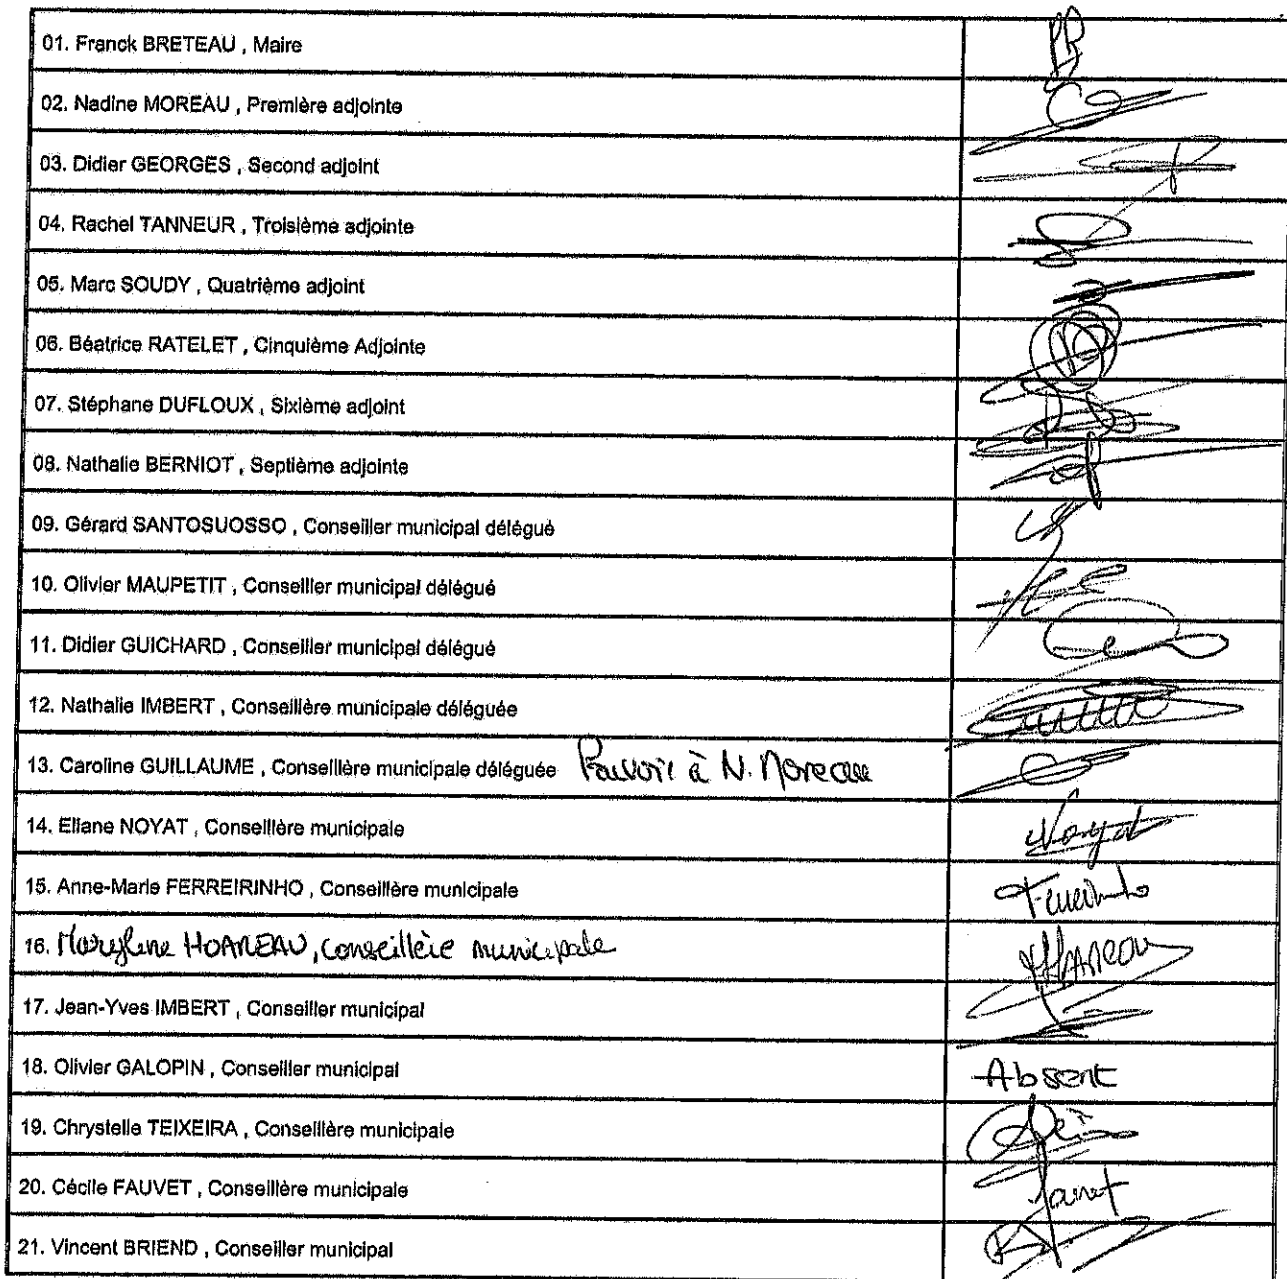 01. Franck BRETEAU , Maire
02. Nadine MOREAU , Première adjointe
03. Didier GEORGES , Second adjoint
04. Rachel TANNEUR , Troisième adjointe
05. Marc SOUDY , Quatrième adjoint
06. Béatrice RATELET , Cinquième Adjointe
07. Stéphane DUFLOUX , Sixième adjoint
08. Nathalie BERNIOT , Septième adjointe
09. Gérard SANTOSUOSSO , Conseiller municipal délégué
10. Olivier MAUPETIT , Conseiller municipal délégué
11. Didier GUICHARD , Conseiller municipal délégué
12. Nathalie IMBERT , Conseillère municipale déléguée
13. Caroline GUILLAUME , Conseillère municipale déléguée Pouvoir à N. Moreau
14. Eliane NOYAT , Conseillère municipale Noyat
15. Anne-Marie FERREIRINHO , Conseillère municipale
16. Marylene HOAREAU, conseillère municipale Hoareau
17. Jean-Yves IMBERT , Conseiller municipal
18. Olivier GALOPIN , Conseiller municipal Absent
19. Chrystelle TEIXEIRA , Conseillère municipale
20. Cécile FAUVET , Conseillère municipale Fauvet
21. Vincent BRIEND , Conseiller municipal